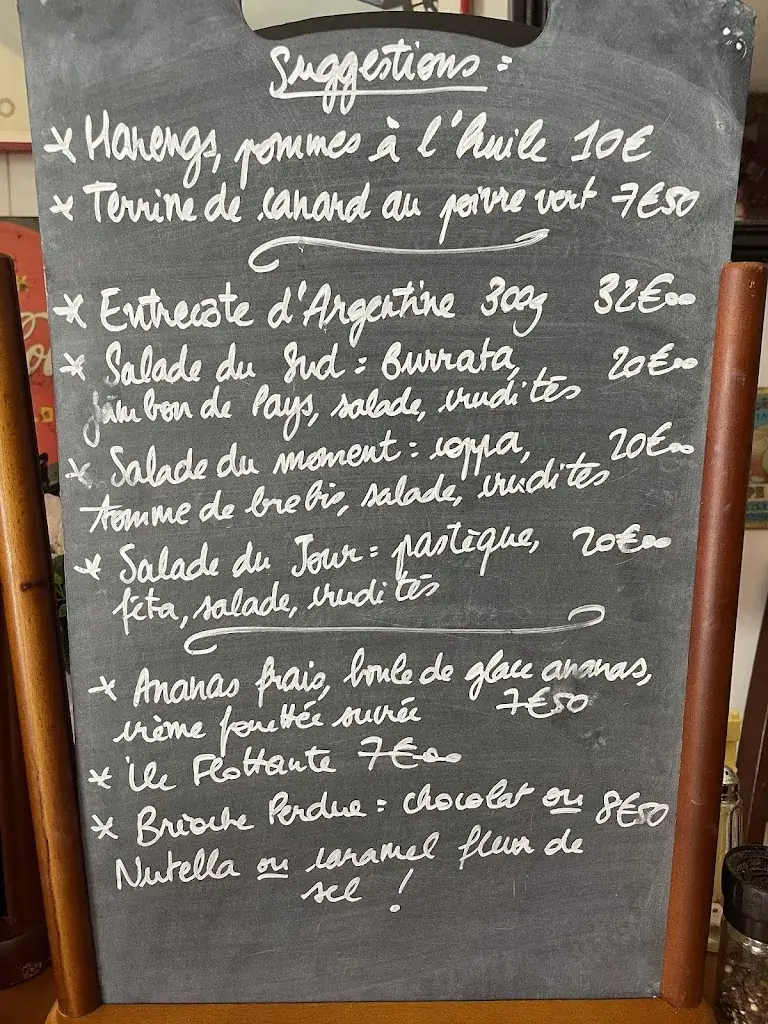 Suggestions :
* Harengs, pommes à l'huile 10€
* Terrine de canard au poivre vert 7€50
* Entrecote d'Argentine 300g 32€00
* Salade du Sud = Burrata, 20€00
Jambon de Pays, salade, crudités
* Salade du moment : coppa, 20€00
tomme de brebis, salade, crudités
* Salade du Jour = pastèque, 20€00
féta, salade, crudités
* Ananas frais, boule de glace ananas,
crème fouettée sucrée 7€50
* île Flottante 7€00
* Brioche Perdue = chocolat ou 8€50
Nutella ou caramel fleur de
sel !